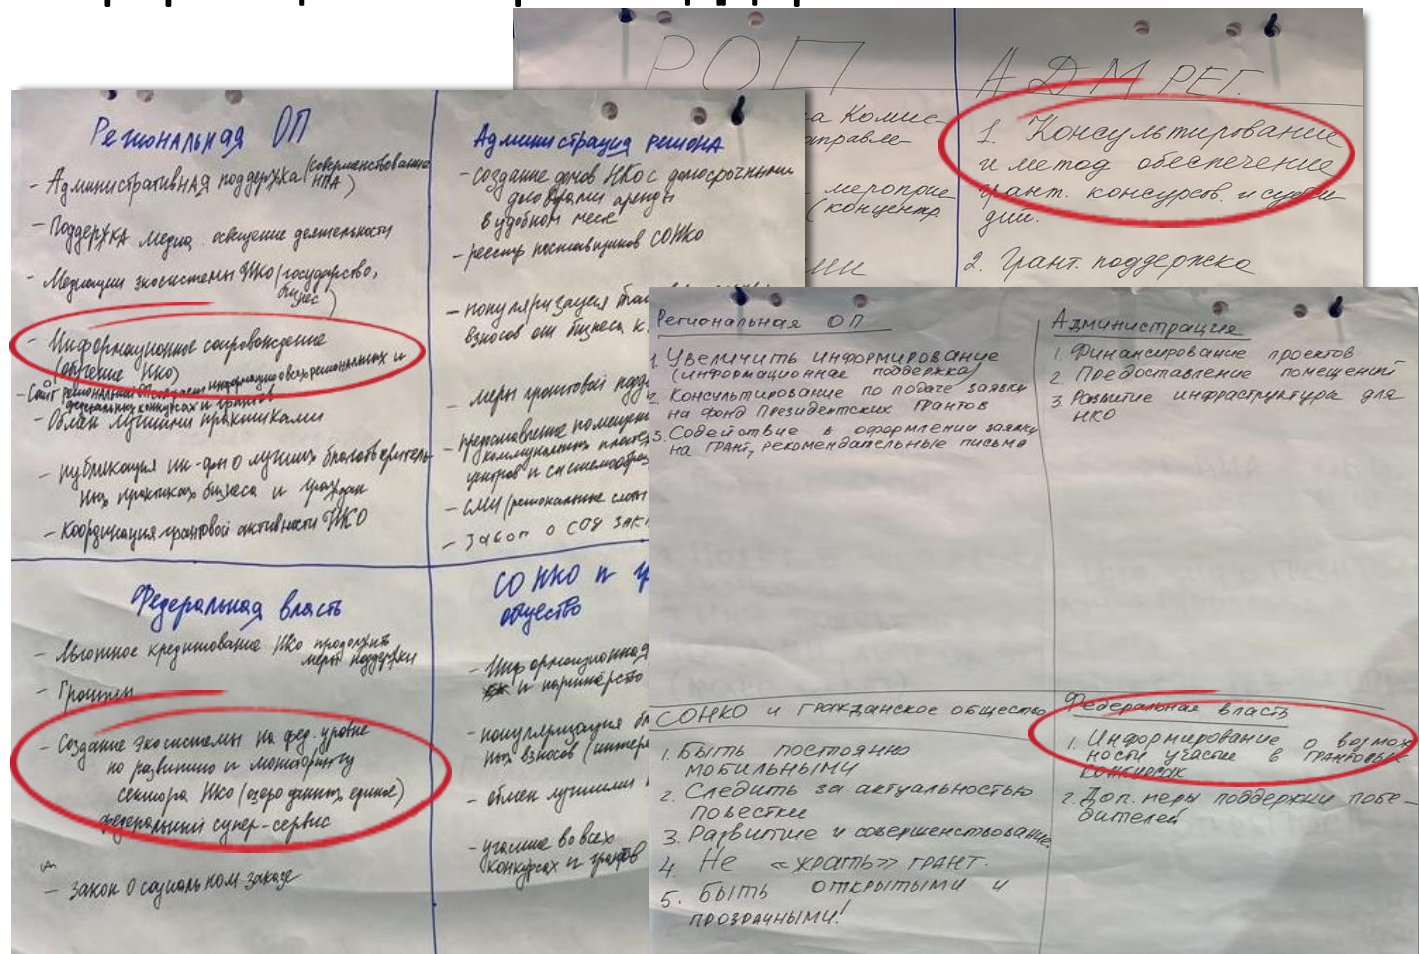 РОП
АДМ РЕГ.
на Комис-
направле-
мероприя
(концентр
1. Консультирование
и метод обеспечение
грант. конкурсов и субси-
дий.
2. Грант. поддержка
Региональная ОП
- Административная поддержка (совершенствование
НПА)
- Поддержка медиа. освещение деятельности
- Медиации экосистемы НКО (государство,
бизнес)
- Информационное сопровождение
(обучение НКО)
- Сайт региональной ОП создать информацию о всех региональных и
федеральных конкурсах и грантов
- Обмен лучшими практиками
- публикация ин-фии о лучших благотворитель-
ных практиках бизнеса и граждан
- координация грантовой активности НКО
Администрация региона
- создание домов НКО с долгосрочными
договорами аренды
в удобном месте
- реестр поставщиков СОНКО
- популяризация
взносов от бизнеса к
- меры грантовой
- предоставление
коммунальных
центров и
- СМИ (региональные слоты
- Закон о СОЦ ЗАК
Федеральная власть
- Льготное кредитование НКО продолжить
меры поддержки
- Гранты
- Создание экосистемы на фед. уровне
по развитию и мониторингу
сектора НКО (озеро данных, единое)
федеральный супер-сервис
- закон о социальном заказе
СО НКО и
общество
- Информационная
и партнёрство
- популяризация
ных взносов
- обмен лучшими
- участие во всех
конкурсах и грантов
Региональная ОП
1. Увеличить информирование
(информационная поддержка)
2. Консультирование по подаче заявки
на Фонд Президентских Грантов
3. Содействие в оформлении заявки
на грант, рекомендательные письма
Администрация
1. Финансирование проектов
2. Предоставление помещений
3. Развитие инфраструктуры для
НКО
СОНКО и гражданское общество
1. Быть постоянно
мобильными
2. Следить за актуальностью
повестки
3. Развитие и совершенствование
4. Не «жрать» грант.
5. Быть открытыми и
прозрачными!
Федеральная власть
1. Информирование о возмож
ности участие в грантовых
конкурсах
2. Доп. меры поддержки побе-
дителей